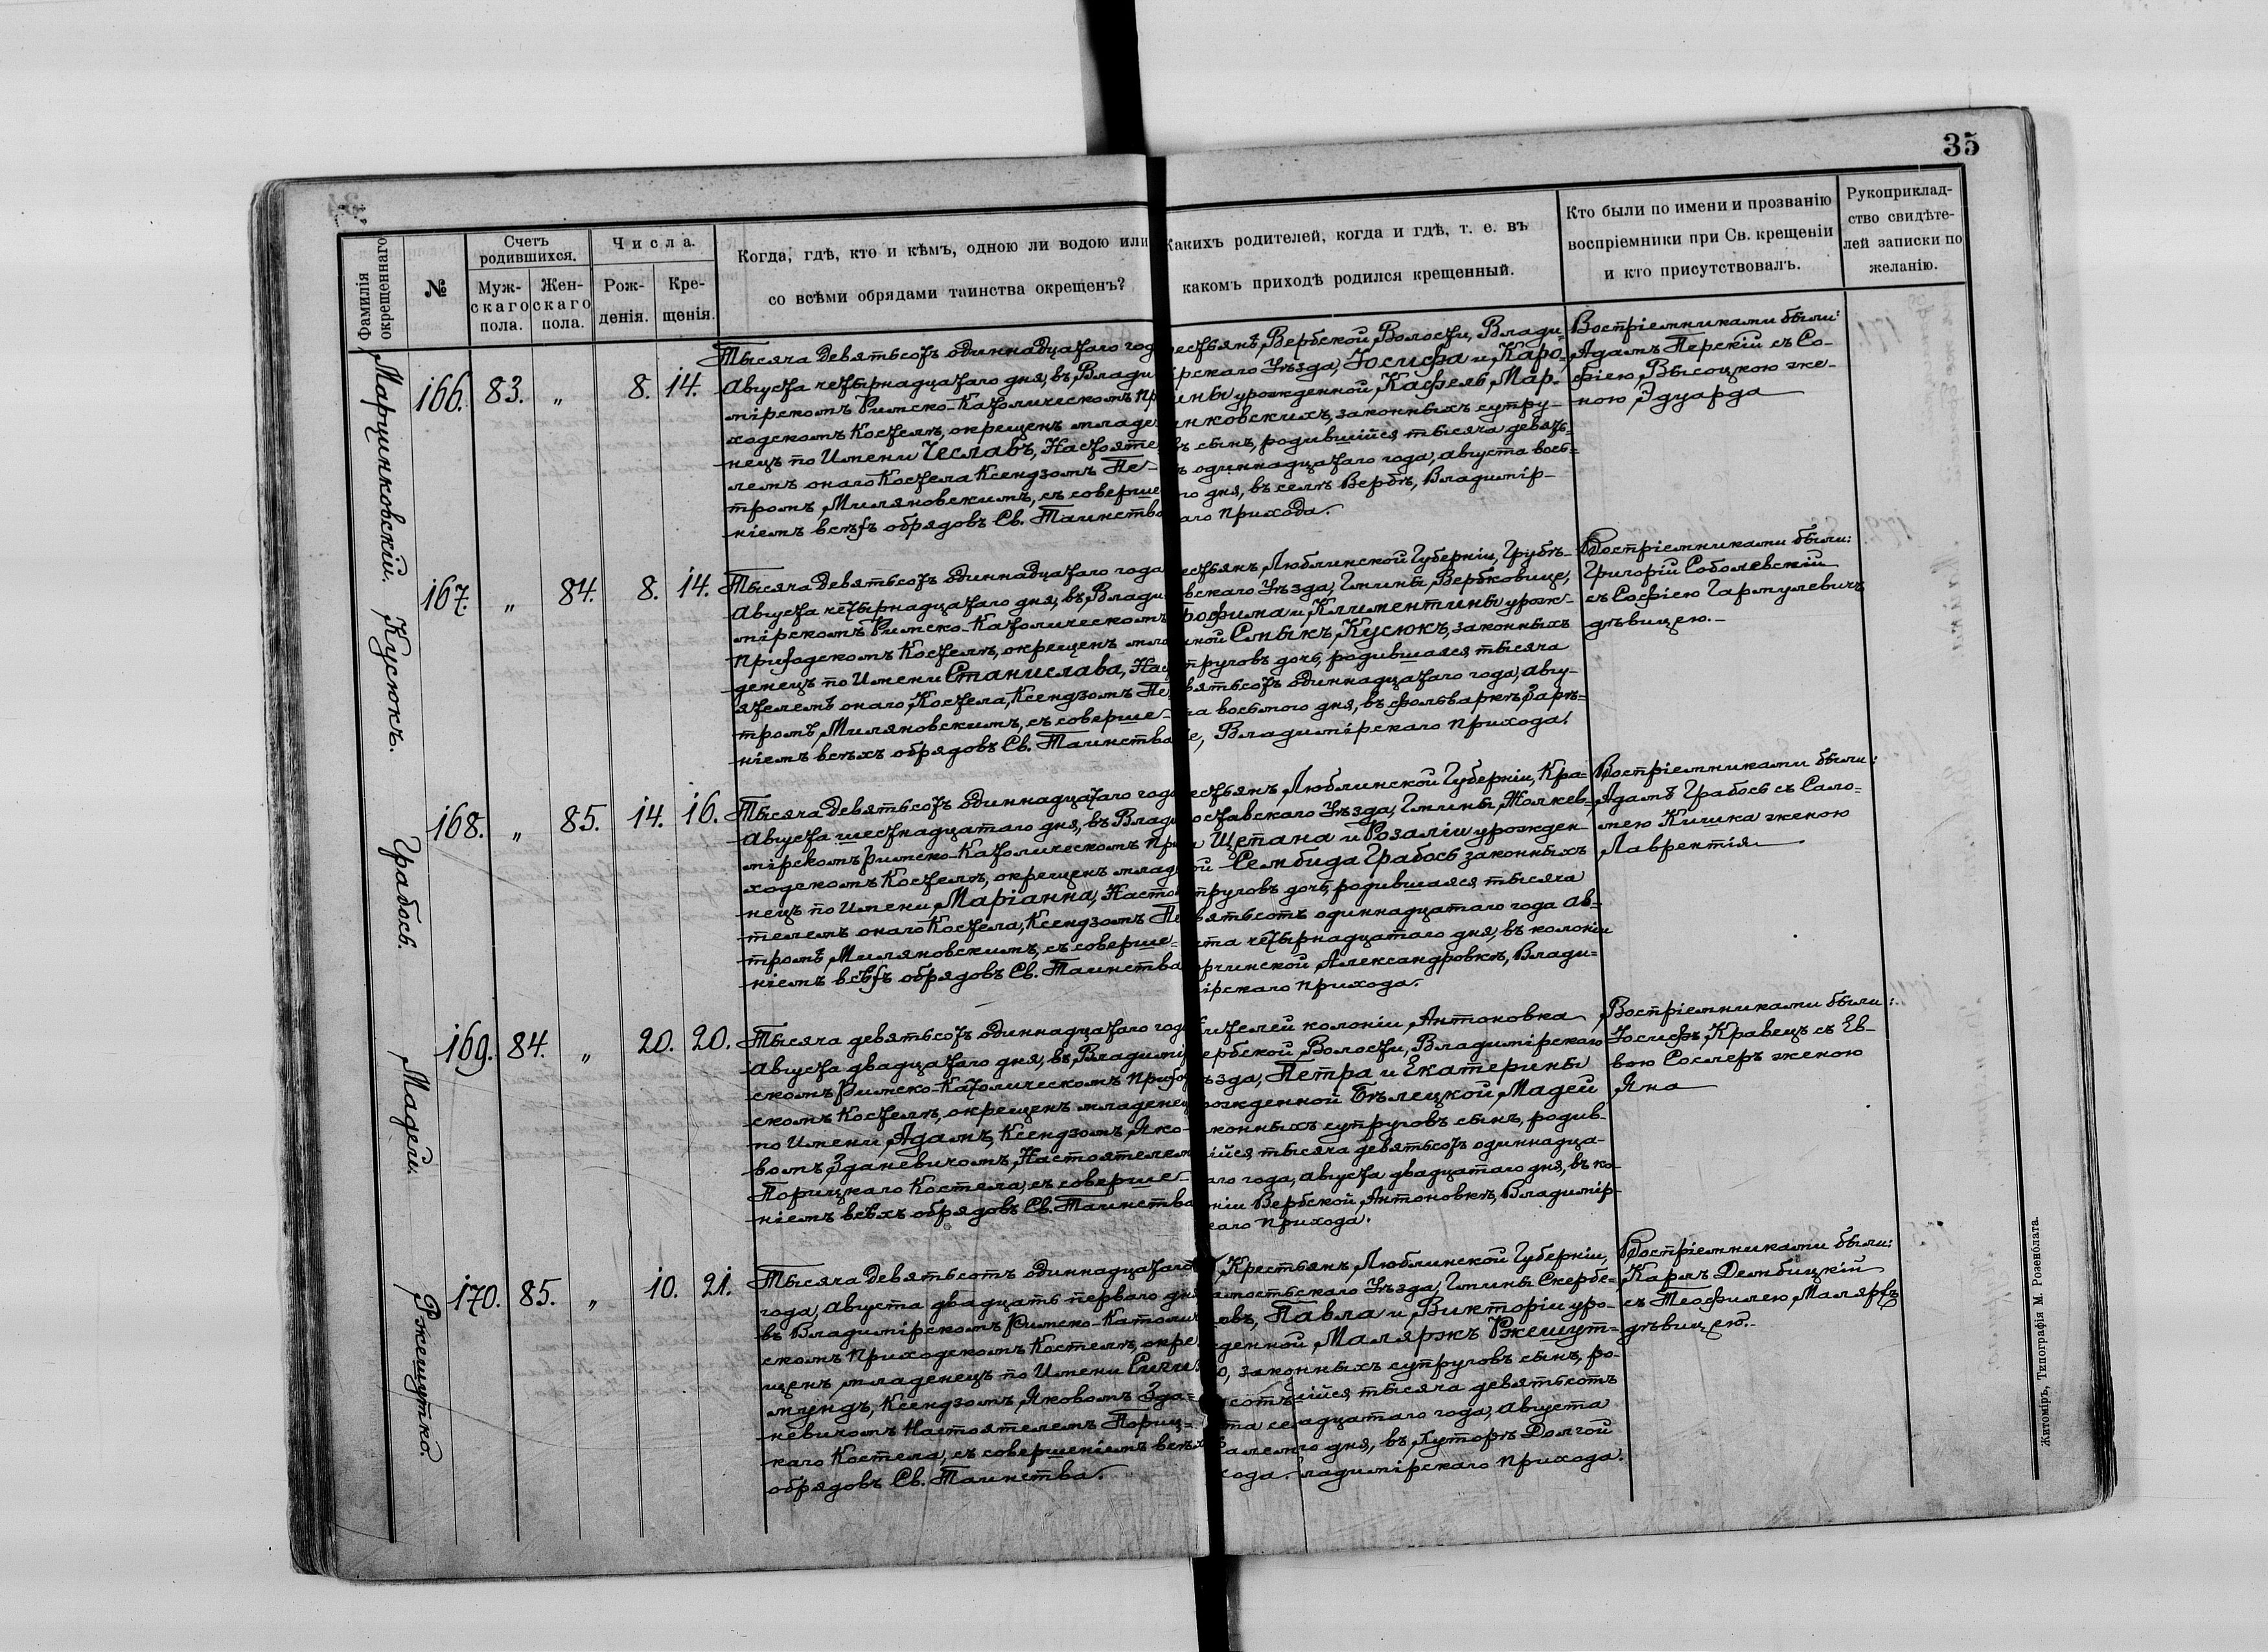 35
Фамилія окрещеннаго
№
Счетъ родившихся.
Муж-скаго пола.
Жен-скаго пола.
Числа.
Рож-денія.
Кре-щенія.
Когда, гдѣ, кто и кѣмъ, одною ли водою или
со всѣми обрядами таинства окрещенъ?
Какихъ родителей, когда и гдѣ, т. е. въ
какомъ приходѣ родился крещенный.
Кто были по имени и прозванію
воспріемники при Св. крещеніи
и кто присутствовалъ.
Рукоприклад-
ство свидѣте-
лей записки по
желанію.
Марцинковскій.
166. 83. „ 8. 14.
Тысяча девятьсотъ одиннадцатаго год
Августа четырнадцатаго дня, въ Влади
мірскомъ Римско-Католическомъ пр
ходскомъ Костелѣ, окрещенъ младе
нецъ по Имени Чеславъ, Настояте
лемъ онаго Костела Ксендзомъ Пе-
тромъ Миляновскимъ, съ соверше
ніемъ всѣхъ обрядовъ Св. Таинства
рестьянъ, Вербской Волости, Влади-
ірскаго Уѣзда, Іосифа и Каро-
ины урожденной Кафель Мар-
инковскихъ, законныхъ супру-
въ сынъ, родившійся тысяча девять-
ъ одиннадцатаго года, августа вось-
го дня, въ селѣ Вербѣ, Владимір-
аго прихода.
Воспріемниками были:
Адамъ Перскій съ Со-
фіею Высоцкою же-
ною Эдуарда
Кусюкъ.
167. „ 84. 8. 14.
Тысяча девятьсотъ одиннадцатаго года
Августа четырнадцатаго дня, въ Влади
мірскомъ Римско-Католическомъ
Приходскомъ Костелѣ, окрещенъ мла
денецъ по Имени Станислава, Нас
ятелемъ онаго Костела, Ксендзомъ Пе
тромъ Миляновскимъ, съ соверше-
ніемъ всѣхъ обрядовъ Св. Таинства
рестьянъ, Люблинской Губерніи, Грубѣ-
вскаго Уѣзда, Гмины, Вербковице,
рофима и Климентины урож-
ной Смыкъ, Кусюкъ, законныхъ
пруговъ дочь, родившаяся тысяча
вятьсотъ одиннадцатаго года, авгу-
та восьмого дня, въ фольваркѣ Зарѣ-
е, Владимірскаго прихода.
Воспріемниками были:
Григорій Соболевскій
съ Софіею Гармулевичъ
дѣвицею.
Грабось.
168. „ 85. 14. 16.
Тысяча девятьсотъ одиннадцатаго года
Августа шестнадцатаго дня, въ Влади
мірскомъ Римско-Католическомъ при
ходскомъ Костелѣ, окрещенъ млад
нецъ по Имени Маріанна, Насто
телемъ онаго Костела, Ксендзомъ Пе
тромъ Миляновскимъ, съ соверше-
ніемъ всѣхъ обрядовъ Св. Таинства
рестьянъ Люблинской Губерніи, Кра-
оставскаго Уѣзда, Гмины, Жолкев-
и Щепана и Розаліи урожден-
ой Сембида Грабось законныхъ
пруговъ дочь, родившаяся тысяча
вятьсотъ одиннадцатаго года ав-
ста четырнадцатаго дня, въ колоніи
рчинской Александровкѣ, Влади-
ірскаго прихода.
Воспріемниками были:
Адамъ Грабось съ Сало-
меею Кишка женою
Лаврентія
Мадей.
169. 84. „ 20. 20.
Тысяча девятьсотъ одиннадцатаго год
Августа двадцатаго дня, въ Владимі
скомъ Римско-Католическомъ приход
скомъ Костелѣ, окрещенъ младенец
по Имени Адамъ, Ксендзомъ Яко-
вомъ Зданевичомъ, Настоятелем
Порицкаго Костела, съ соверше-
ніемъ всѣхъ обрядовъ Св. Таинства
ителей колоніи Антоновка
ербской Волости, Владимірскаго
ѣзда, Петра и Екатерины
рожденной Бѣлецкой, Мадей
конныхъ супруговъ сынъ, родив-
ійся тысяча девятьсотъ одиннадца-
аго года, августа двадцатаго дня, въ ко-
оніи Вербской Антоновкѣ, Владимір-
каго прихода.
Воспріемниками были:
Іосифъ Кравецъ съ Ев-
вою Сослеръ женою
Яна
Ржешутко.
170. 85. „ 10. 21.
Тысяча девятьсотъ одиннадцатаго
года, Августа двадцать перваго дня
въ Владимірскомъ Римско-Католич
скомъ приходскомъ Костелѣ, окре
щенъ младенецъ по Имени Сиги
мундъ, Ксендзомъ Яковомъ Зда-
невичомъ Настоятелемъ Пориц-
каго Костела, съ совершеніемъ всѣхъ
обрядовъ Св. Таинства.
Крестьянъ, Люблинской Губерніи,
амостьскаго Уѣзда, Гмины Скербе-
овъ, Павла и Викторіи уро-
денной Маляржъ Ржешут-
о, законныхъ супруговъ сынъ, ро-
ійся тысяча девятьсотъ
адцатаго года, Августа
го дня, въ Хуторѣ Долгой
ладимірскаго прихода.
Воспріемниками были:
Карлъ Дембицкій
съ Теофилею Маляржъ
дѣвицею.
Житоміръ, Типографія М. Розенблата.